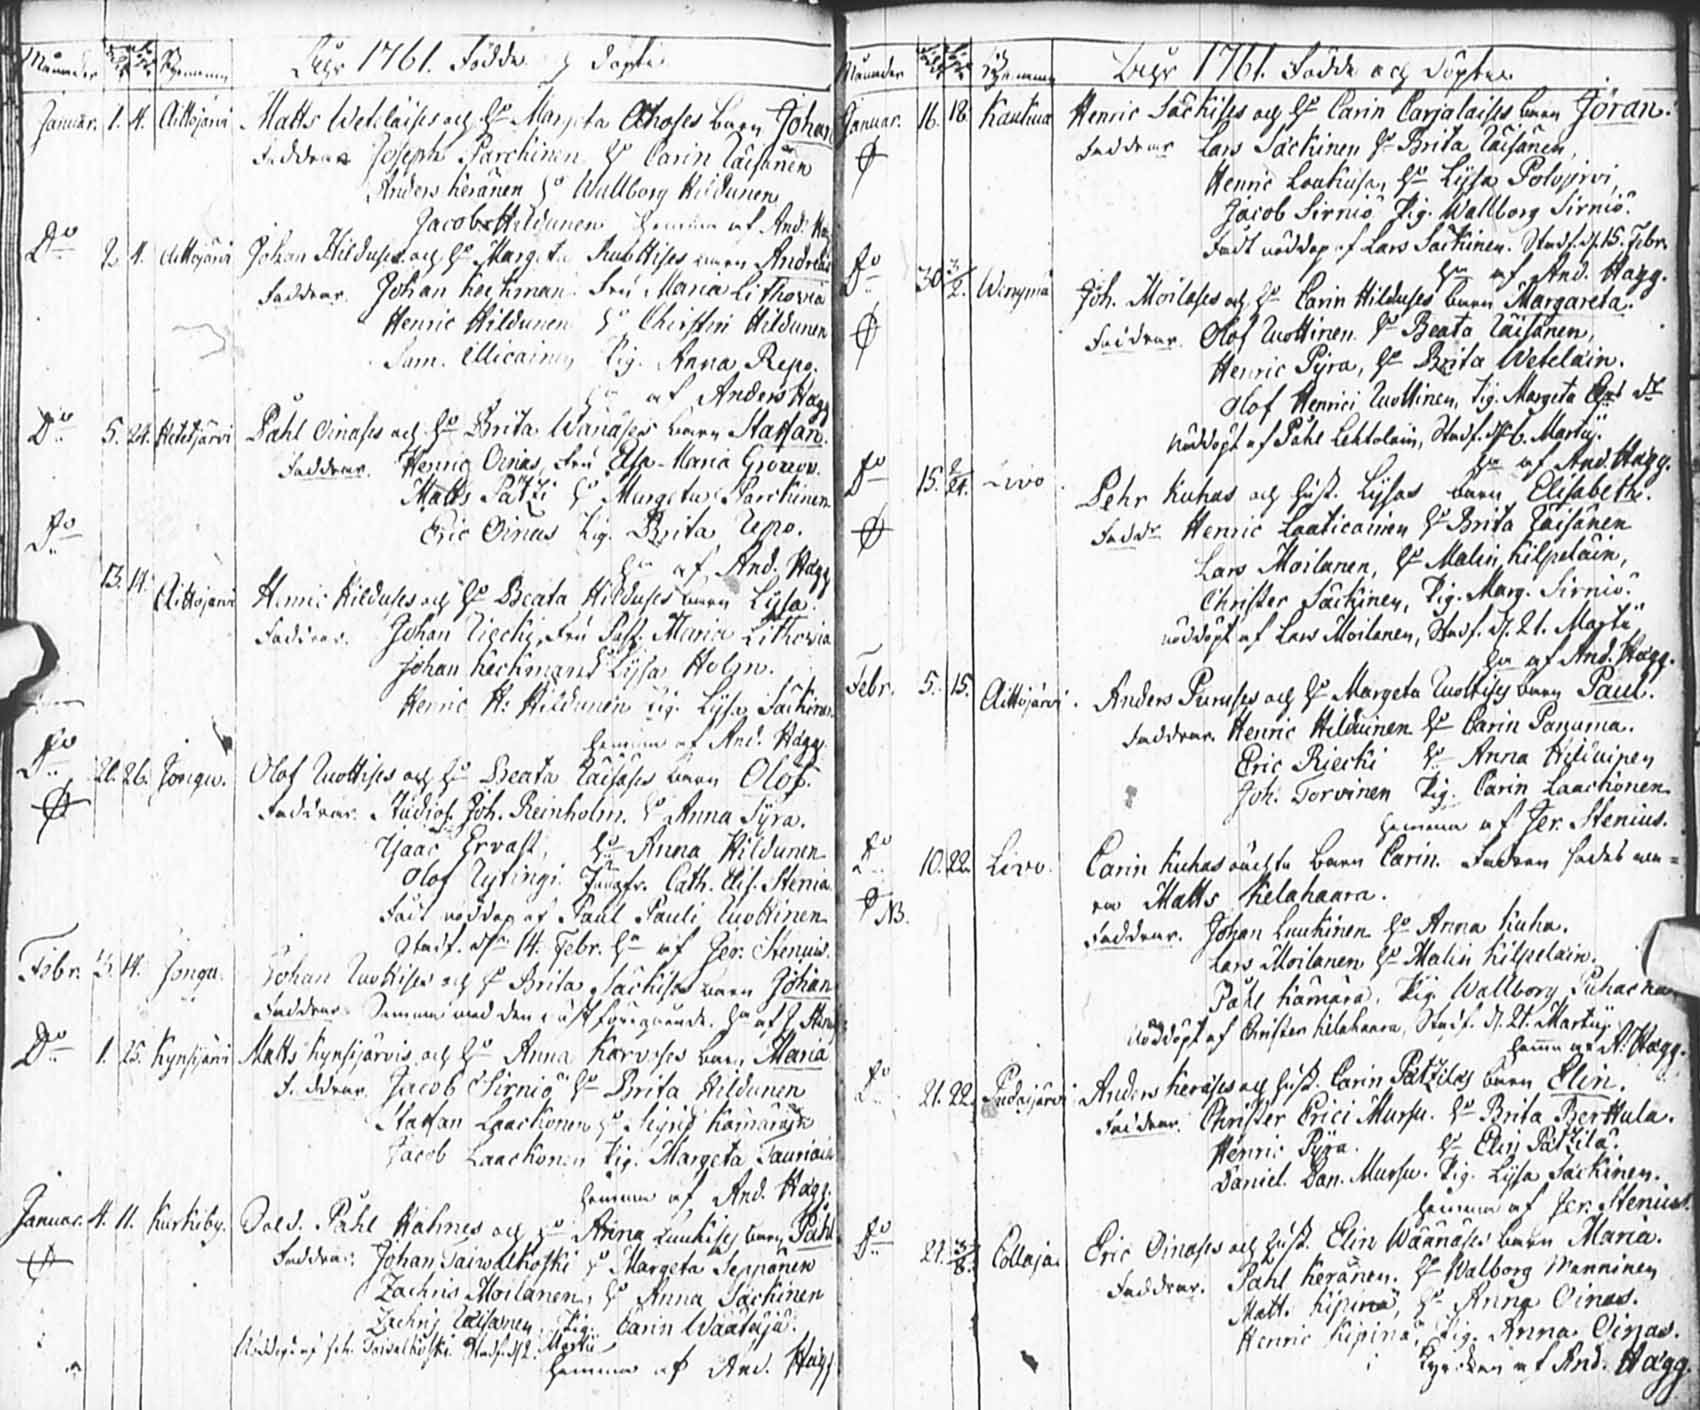 Månader Hemman Åhr 1761. Födde och döpte
Januar. 1. 4. Aittojärvi Matts Wetelaises och Ho Margeta Ahoses barn Johan
Faddrar Joseph Parckinen Ho Carin Räisänen
Anders Keränen Ho Wallborg Hildunen
Jacob Hildunen hemma af And. Hägg
Do 2. 4. Aittojärvi Johan Hilduses och Ho Margeta Ruottises barn Andreas
Faddrar. Johan Keckman. Fru Maria Lithovia
Henric Hildunen Ho Christin Hildunen
Sam. Illicainen Pig. Anna Repo.
af Anders Hägg
Do 5. 24. Hetejärvi Påhl Oinases och Ho Brita Wänäses barn Staffan.
Faddrar. Henric Oinas, Fru Elsa Maria
Matts Pätzi Ho Margeta Parckinen
Eric Oinas Pig. Brita Repo.
Hm af And. Hägg
Do 13. 14. Aittojärvi Henric Hilduses och Ho Beata Hilduses barn Lijsa.
Faddrar. Johan Riecki, Fru Past. Maria Lithovia
Johan Keckman Ho Lijsa Holm.
Henric H. Hildunen Pig. Lijsa Säckinen
hemma af And. Hägg.
Do 21. 26. Jongu. Olof Ruottises och Ho Beata Räisäses barn Olof.
Faddrar. Studios. Joh. Reinholm. Ho Anna Pyra.
Isaac Ervast, Ho Anna Hildunen
Olof Rytingi. Jungfr. Cath. Elis. Stenia
Fadt nöddop af Paul Pauli Ruottinen
Stadf. d. 14. Febr. Hm af Jer. Stenius.
Febr. 3. 14. Jongu. Johan Ruottises och Ho Brita Säckises barn Johan
Faddrar. Samma med den näst föregående. Hm af J. Sten.
Do 1. 25. Kynsijärvi Matts Kynsijärvis och Ho Anna Karvoses barn Maria
Faddrar. Jacob Sirniö Ho Brita Hildunen
Staffan Laackonen Ho Sigrid Kämäräjn
Jacob Laackonen Pig. Margeta Tauriain
hemma af And. Hägg.
Januar. 4. 11. Kurkiby. Påhl Hahnes och Ho Anna Luukises barn Påhl
Faddrar: Johan Taivalkoski Ho Margeta Seppänen
Zachris Moilanen, Ho Anna Säckinen
Zachris Räisänen. Pig. Carin Wäätäjä.
Nöddöpt af Joh. Taivalkoski Stadf. d. 2. Martii
hemma af And. Hägg
Månader Hemman Åhr 1761. Födde och döpte
Januar. 16. 18. Kautiua Henric Säckises och Ho Carin Carjalaises barn Jöran.
Faddrar Lars Säckinen Ho Brita Räisänen,
Henric Loukusa, Ho Lijsa Polojervi,
Jacob Sirniö Pig. Wallborg Sirniö.
Fadt nöddop af Lars Säckinen. Stadf. d. 15. Febr.
Hm af And. Hägg.
Do 30. 3/2. Wengymä Joh. Moilases och Ho Carin Hilduses barn Margareta.
Faddrar. Olof Ruottinen. Ho Beata Räisänen,
Henric Pyra, Ho Brita Wetelain.
Olof Henrici Ruottinen, Pig. Margeta
Nöddöpt af Påhl Lehtolain, Stadf. d. 6. Martij.
Hm af And. Hägg.
Do 15. 2/24. Livo. Pehr Kuhas och Hust. Lijsas barn Elisabeth.
Faddr. Henric Laaticainen Ho Brita Räisänen
Lars Moilanen, Ho Malin Kilpeläin,
Christer Säckinen, Pig. Marg. Sirniö.
nöddöpt af Lars Moilanen, Stadf. d. 21. Martii
Hm af And. Hägg.
Febr. 5. 15. Aittojärvi. Anders Puruses och Ho Margeta Ruottises barn Paul.
Faddrar. Henric Hilduinen Ho Carin Panuma.
Eric Riecki Ho Anna Hilduinen
Joh. Torvinen Pig. Carin Laackonen
hemma af Jer. Stenius.
Do 10. 22. Livo. Carin Kuhas oächta barn Carin. Fadren
NB. Matts Kelahaara.
Faddrar. Johan Luukinen Ho Anna Kuha.
Lars Moilanen Ho Malin Kilpelain.
Påhl Kämärä. Pig. Wallborg
Nöddöpt af Christer Kelahaara, Stadf. d. 21. Martij.
hemma af A. Hägg.
Do 21. 22. Pudasjärvi Anders Keräses och Hust. Carin Pätzilas barn Elin.
Faddrar. Christer Erici Mursu. Ho Brita Berttula.
Henric Pyra. Ho Elin Pätzilä.
Daniel Dan. Mursu. Pig. Lijsa Säckinen.
hemma af Jer. Stenius.
Do 21. 3/8. Collaja. Eric Oinases och Hust. Elin Wännäses barn Maria.
Faddrar. Påhl Keränen. Ho Walborg Wänninen
Matt. Kipinä, Ho Anna Oinas.
Henric Kipinä, Pig. Anna Oinas.
af And. Hägg.